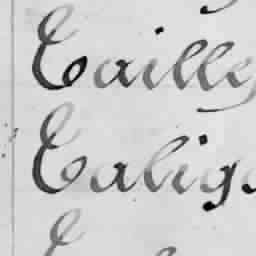 Cailly
Calig